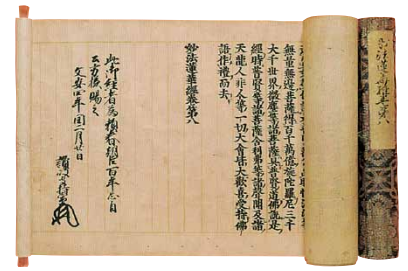 無量無邊菩薩得百千萬億旋陀羅尼三千
大千世界微塵等諸菩薩具普賢道佛說是
經時普賢等諸菩薩舍利弗等諸聲聞及諸
天龍人非人等一切大會皆大歡喜受持佛
語作禮而去
妙法蓮華經卷第八
此御経者為 百年忌日
公方様賜之
文安四年閏二月廿日